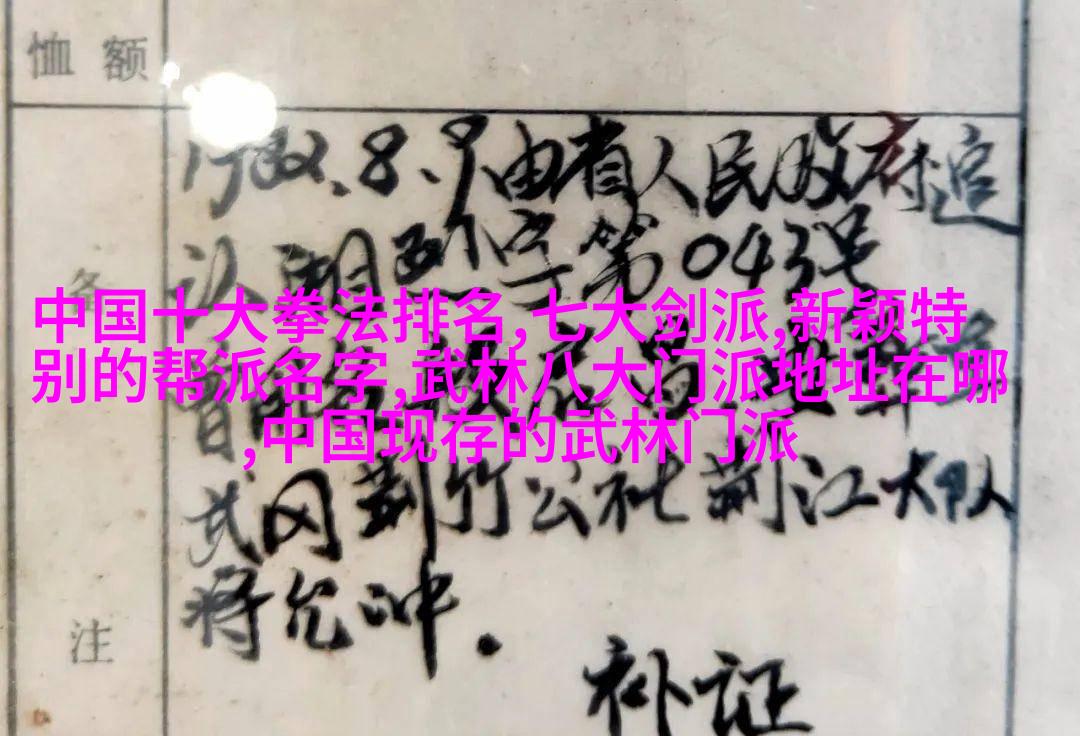 恤额
1982.8.9由省人民政府追
认湘烈字第043号
备
中国十大拳法排名,七大剑派,新颖特
别的帮派名字,武林八大门派地址在哪
,中国现存的武林门派
武冈荆竹公社荆江大队
蒋允冲.
注
补证